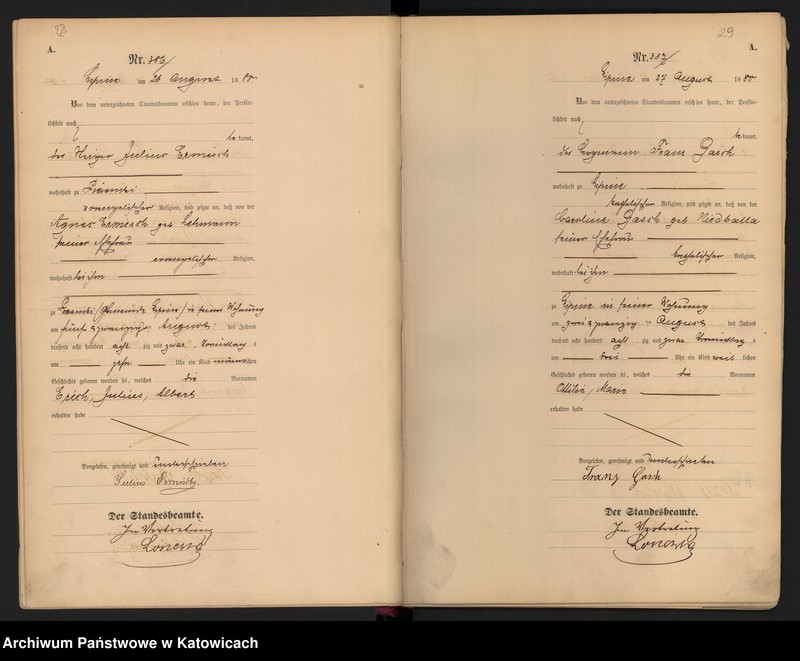 A.
Nr. 386/
Lipine am 26 August 1880
Vor dem unterzeichneten Standesbeamten erschien heute, der Persön-
lichkeit nach
be kannt,
der Julius Ermisch
wohnhaft zu
evangelischer Religion, und zeigte an, daß von der
Agnes Ermisch geb Lehmann
seiner Ehefrau
evangelischer Religion,
wohnhaft bei ihm
zu (Gemeinde Lipine) in seiner Wohnung
am fünf zwanzig ten August des Jahres
tausend acht hundert acht zig und zwar Vormittag s
um zehn Uhr ein Kind männlichen
Geschlechts geboren worden sei, welches die Vornamen
Erich, Julius, Albert
erhalten habe
Vorgelesen, genehmigt und unterschrieben
Julius Ermisch.
Der Standesbeamte.
In Vertretung
29
A.
Nr. 387/
Lipine am 27 August 1880
Vor dem unterzeichneten Standesbeamten erschien heute, der Persön-
lichkeit nach
be kannt,
der Bergmann Franz Gasch
wohnhaft zu Lipine
katholischer Religion, und zeigte an, daß von der
Caroline Gasch geb Niedballa
seiner Ehefrau
katholischer Religion,
wohnhaft bei ihm
zu Lipine in seiner Wohnung
am zwei zwanzig ten August des Jahres
tausend acht hundert acht zig und zwar Vormittag s
um drei Uhr ein Kind weib lichen
Geschlechts geboren worden sei, welches die Vornamen
Ottilie, Marie
erhalten habe
Vorgelesen, genehmigt und unterschrieben
Franz Gasch
Der Standesbeamte.
In Vertretung
Archiwum Państwowe w Katowicach